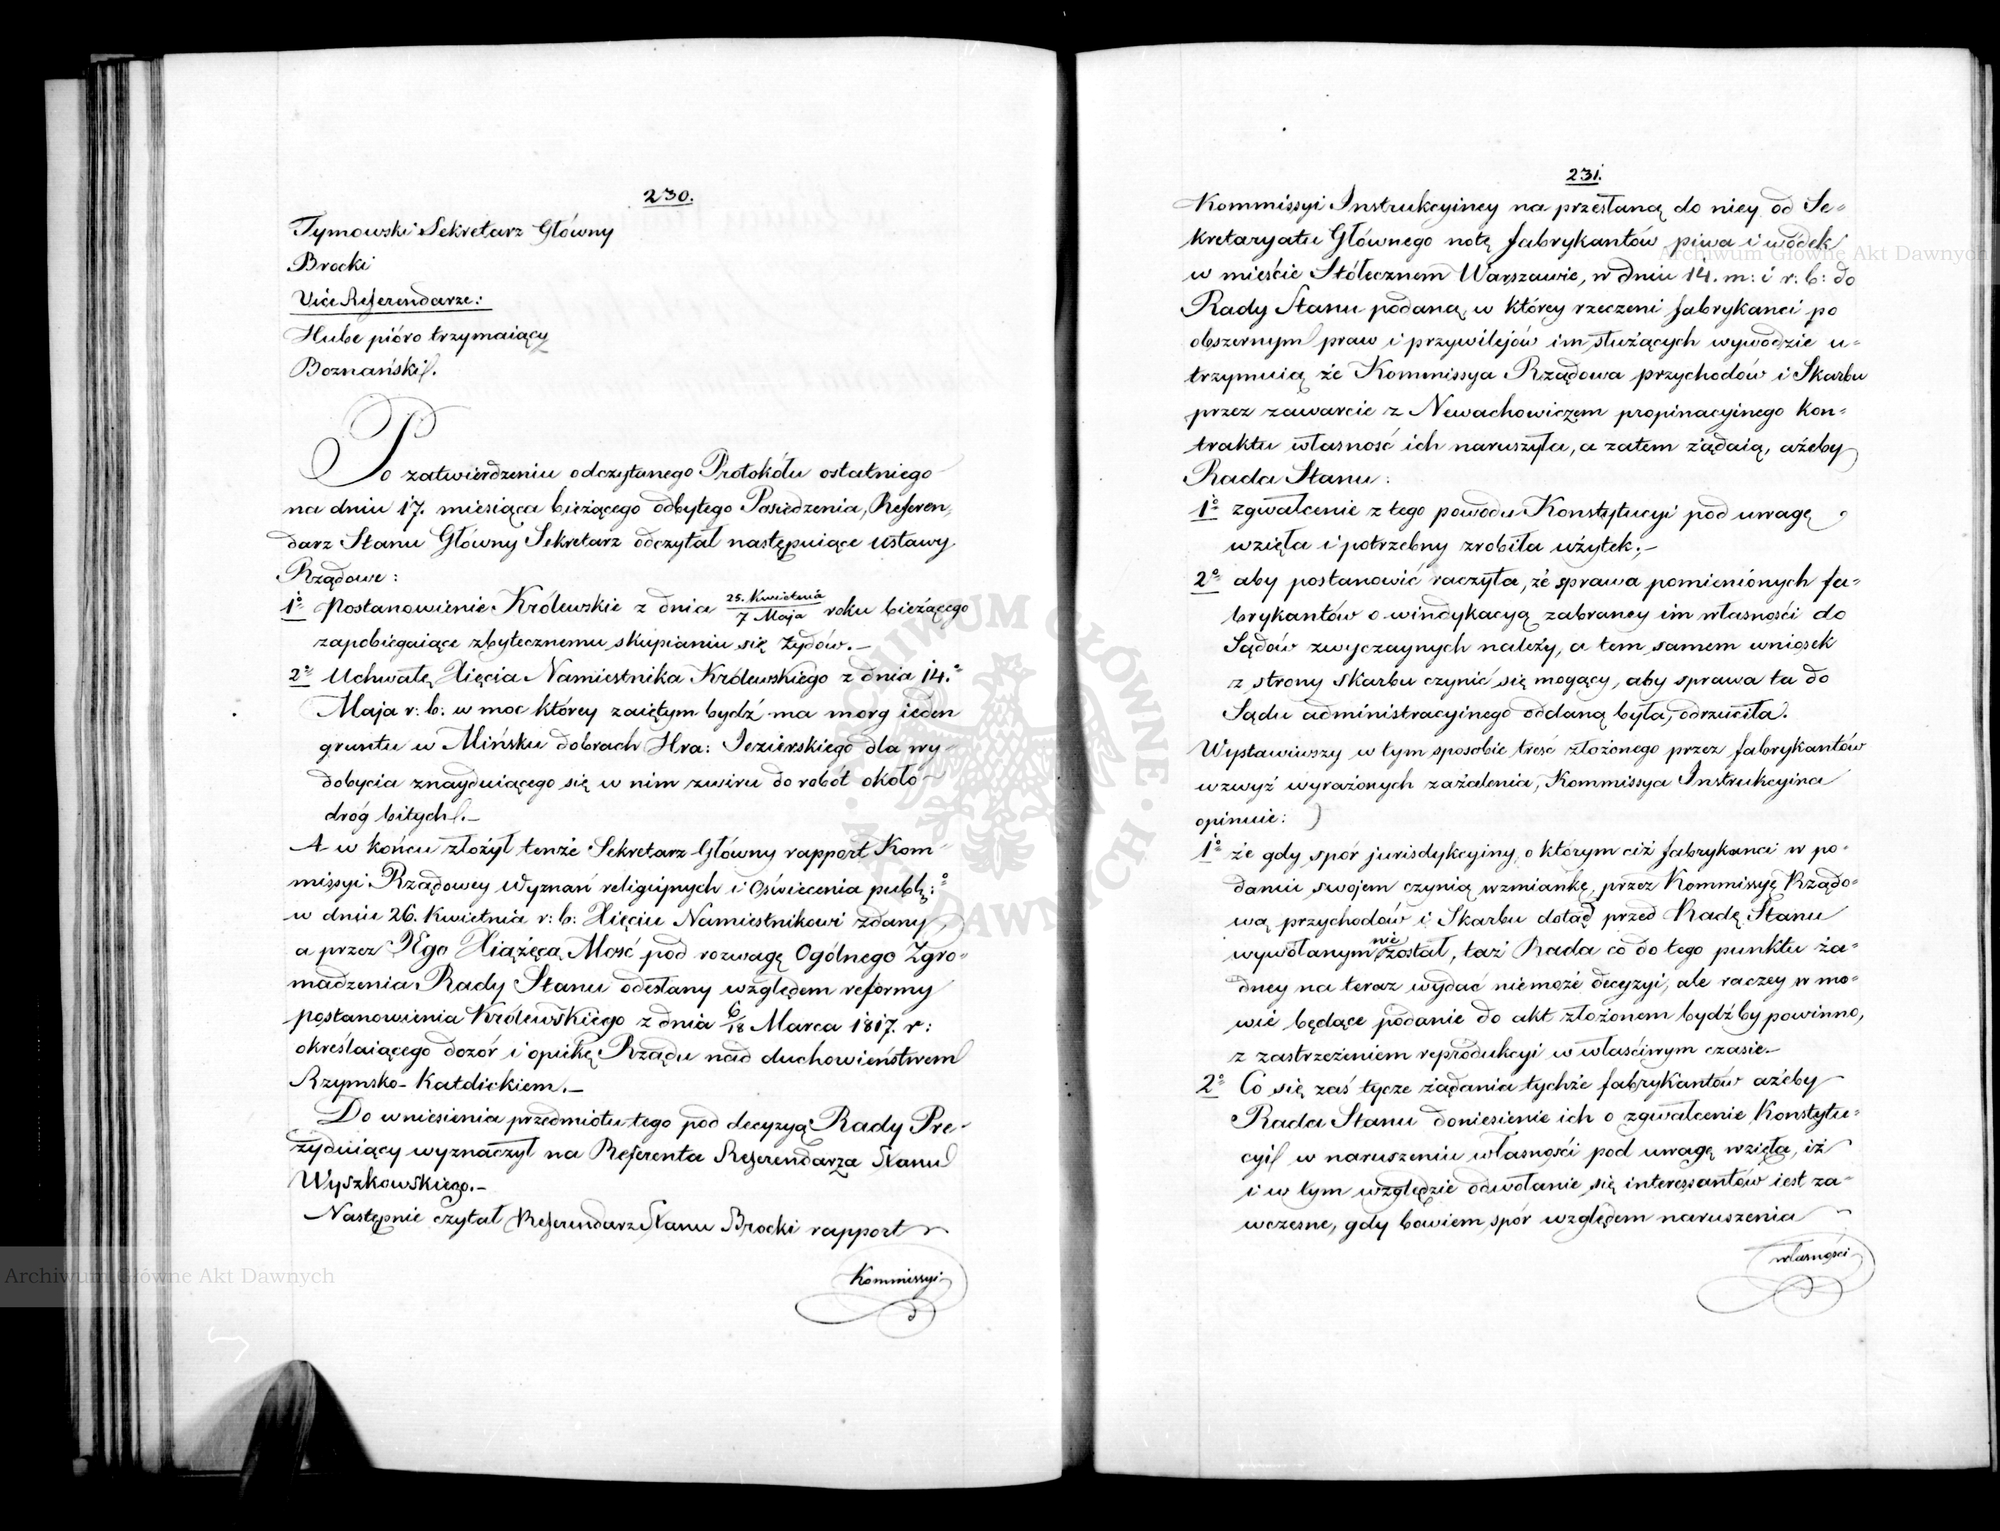 230.
Tymowski Sekretarz Główny
Brocki
Vice Referendarze:
Hube pióro trzymaiący
Boznański.
Po zatwierdzeniu odczytanego Protokółu ostatniego
na dniu 17. miesiąca bieżącego odbytego Posiedzenia, Referen„
darz Stanu Główny Sekretarz odczytał następuiące ustawy
Rządowe:
1º Postanowienie Królewskie z dnia 25. Kwietnia / 7 Maja roku bieżącego
zapobiegaiące zbytecznemu skupianiu się Żydów.—
2º Uchwałę Xięcia Namiestnika Królewskiego z dnia 14.º
Maja r. b. w moc którey zaiętym bydź ma morg ieden
gruntu w Mińsku dobrach Hra: Jezierskiego dla wy-
dobycia znayduiącego się w nim zwiru do robót około
dróg bitych.—
A w końcu złożył tenże Sekretarz Główny rapport Kom-
missyi Rządowey Wyznań religiynych i Oświecenia publ:º
w dniu 26. Kwietnia r: b: Xięciu Namiestnikowi zdany,
a przez JEgo Xiążęcą Mość pod rozwagę Ogólnego Zgro-
madzenia Rady Stanu odesłany względem reformy
postanowienia Królewskiego z dnia 6/18 Marca 1817. r:
określaiącego dozór i opiekę Rządu nad duchowieństwem
Rzymsko-Katolickiem.—
Do wniesienia przedmiotu tego pod decyzyą Rady Pre-
zyduiący wyznaczył na Referenta Referendarza Stanu
Wyszkowskiego.—
Następnie czytał Referendarz Stanu Brocki rapport
Kommissyi
231.
Kommissyi Instrukcyiney na przesłaną do niey od Se-
kretaryatu Głównego notę fabrykantów piwa i wódek
w mieście Stółecznem Warszawie, w dniu 14. m: i r: b: do
Rady Stanu podaną, w którey rzeczeni fabrykanci po
obszernym praw i przywilejów im służących wywodzie u-
trzymuią że Kommissya Rządowa przychodów i Skarbu
przez zawarcie z Newachowiczem propinacyinego kon-
traktu własność ich naruszyła, a zatem żądaią, ażeby
Rada Stanu:
1º zgwałcenie z tego powodu Konstytucyi pod uwagę
wzięła i potrzebny zrobiła użytek;—
2º aby postanowić raczyła, że sprawa pomienionych fa-
brykantów o windykacyą zabraney im własności do
Sądów zwyczaynych należy, a tem samem wniosek
z strony skarbu czynić się mogący, aby sprawa ta do
Sądu administracyinego oddaną była, odrzuciła.
Wystawiwszy w tym sposobie treść złożonego przez fabrykantów
wzwyż wyrażonych zażalenia, Kommissya Instrukcyina
opiniuie:
1º że gdy spór jurisdykcyiny, o którym ciż fabrykanci w po-
daniu swojem czynią wzmiankę, przez Kommissyę Rządo-
wą przychodów i Skarbu dotąd przed Radę Stanu
wywołanym nie został, taż Rada co do tego punktu ża-
dney na teraz wydać niemoże decyzyi, ale raczey w mo-
wie będące podanie do akt złożonem bydź by powinno,
z zastrzeżeniem reprodukcyi w właściwym czasie.—
2º Co się zaś tycze żądania tychże fabrykantów ażeby
Rada Stanu doniesienie ich o zgwałcenie Konstytu-
cyi w naruszeniu własności pod uwagę wzięła, iż
i w tym względzie odwołanie się interessantów iest za-
wczesne, gdy bowiem spór względem naruszenia
własności
Archiwum Główne Akt Dawnych
Archiwum Główne Akt Dawnych
ARCHIWUM GŁÓWNE · AKT DAWNYCH ·